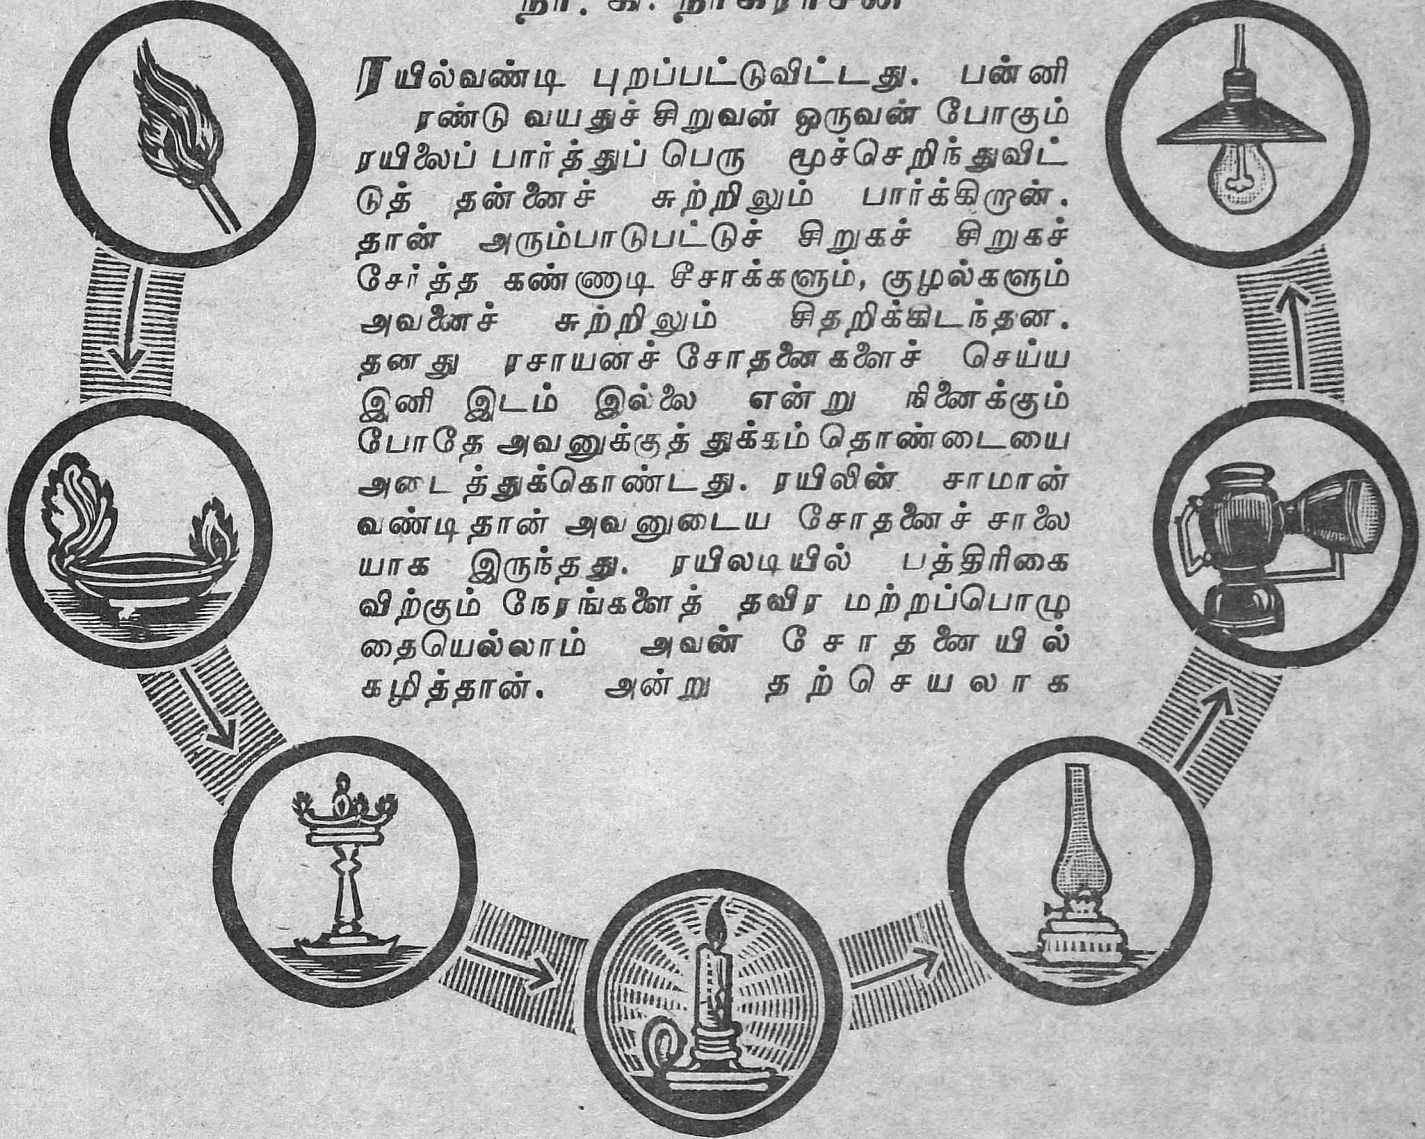 ரயில்வண்டி புறப்பட்டுவிட்டது. பன்னி
ரண்டு வயதுச் சிறுவன் ஒருவன் போகும்
ரயிலைப் பார்த்துப் பெரு மூச்செறிந்துவிட்
டுத் தன்னைச் சுற்றிலும் பார்க்கிறான்.
தான் அரும்பாடுபட்டுச் சிறுகச் சிறுகச்
சேர்த்த கண்ணாடி சீசாக்களும், குழல்களும்
அவனைச் சுற்றிலும் சிதறிக்கிடந்தன.
தனது ரசாயனச் சோதனைகளைச் செய்ய
இனி இடம் இல்லை என்று நினைக்கும்
போதே அவனுக்குத் துக்கம் தொண்டையை
அடைத்துக்கொண்டது. ரயிலின் சாமான்
வண்டிதான் அவனுடைய சோதனைச் சாலை
யாக இருந்தது. ரயிலடியில் பத்திரிகை
விற்கும் நேரங்களைத் தவிர மற்றப்பொழு
தையெல்லாம் அவன் சோதனையில்
கழித்தான். அன்று தற்செயலாக